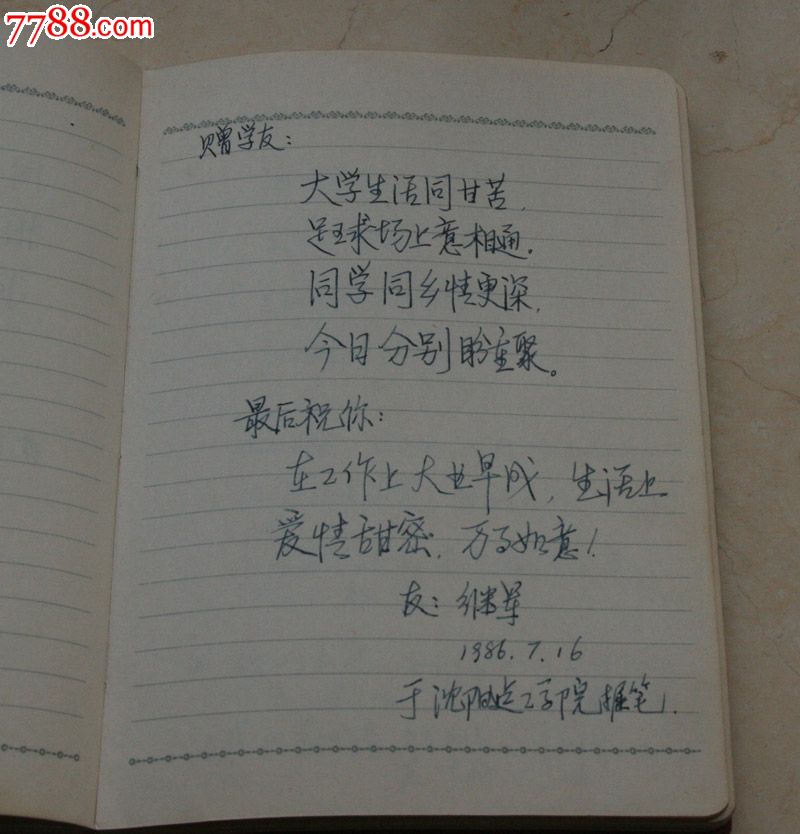 7788.com
赠学友：
大学生活同甘苦，
足球场上意相通。
同学同乡情更深，
今日分别盼重聚。
最后祝你：
在工作上大业早成，生活上
爱情甜密，万事如意！
友：继军
1986.7.16
于沈阳 工学院 笔.